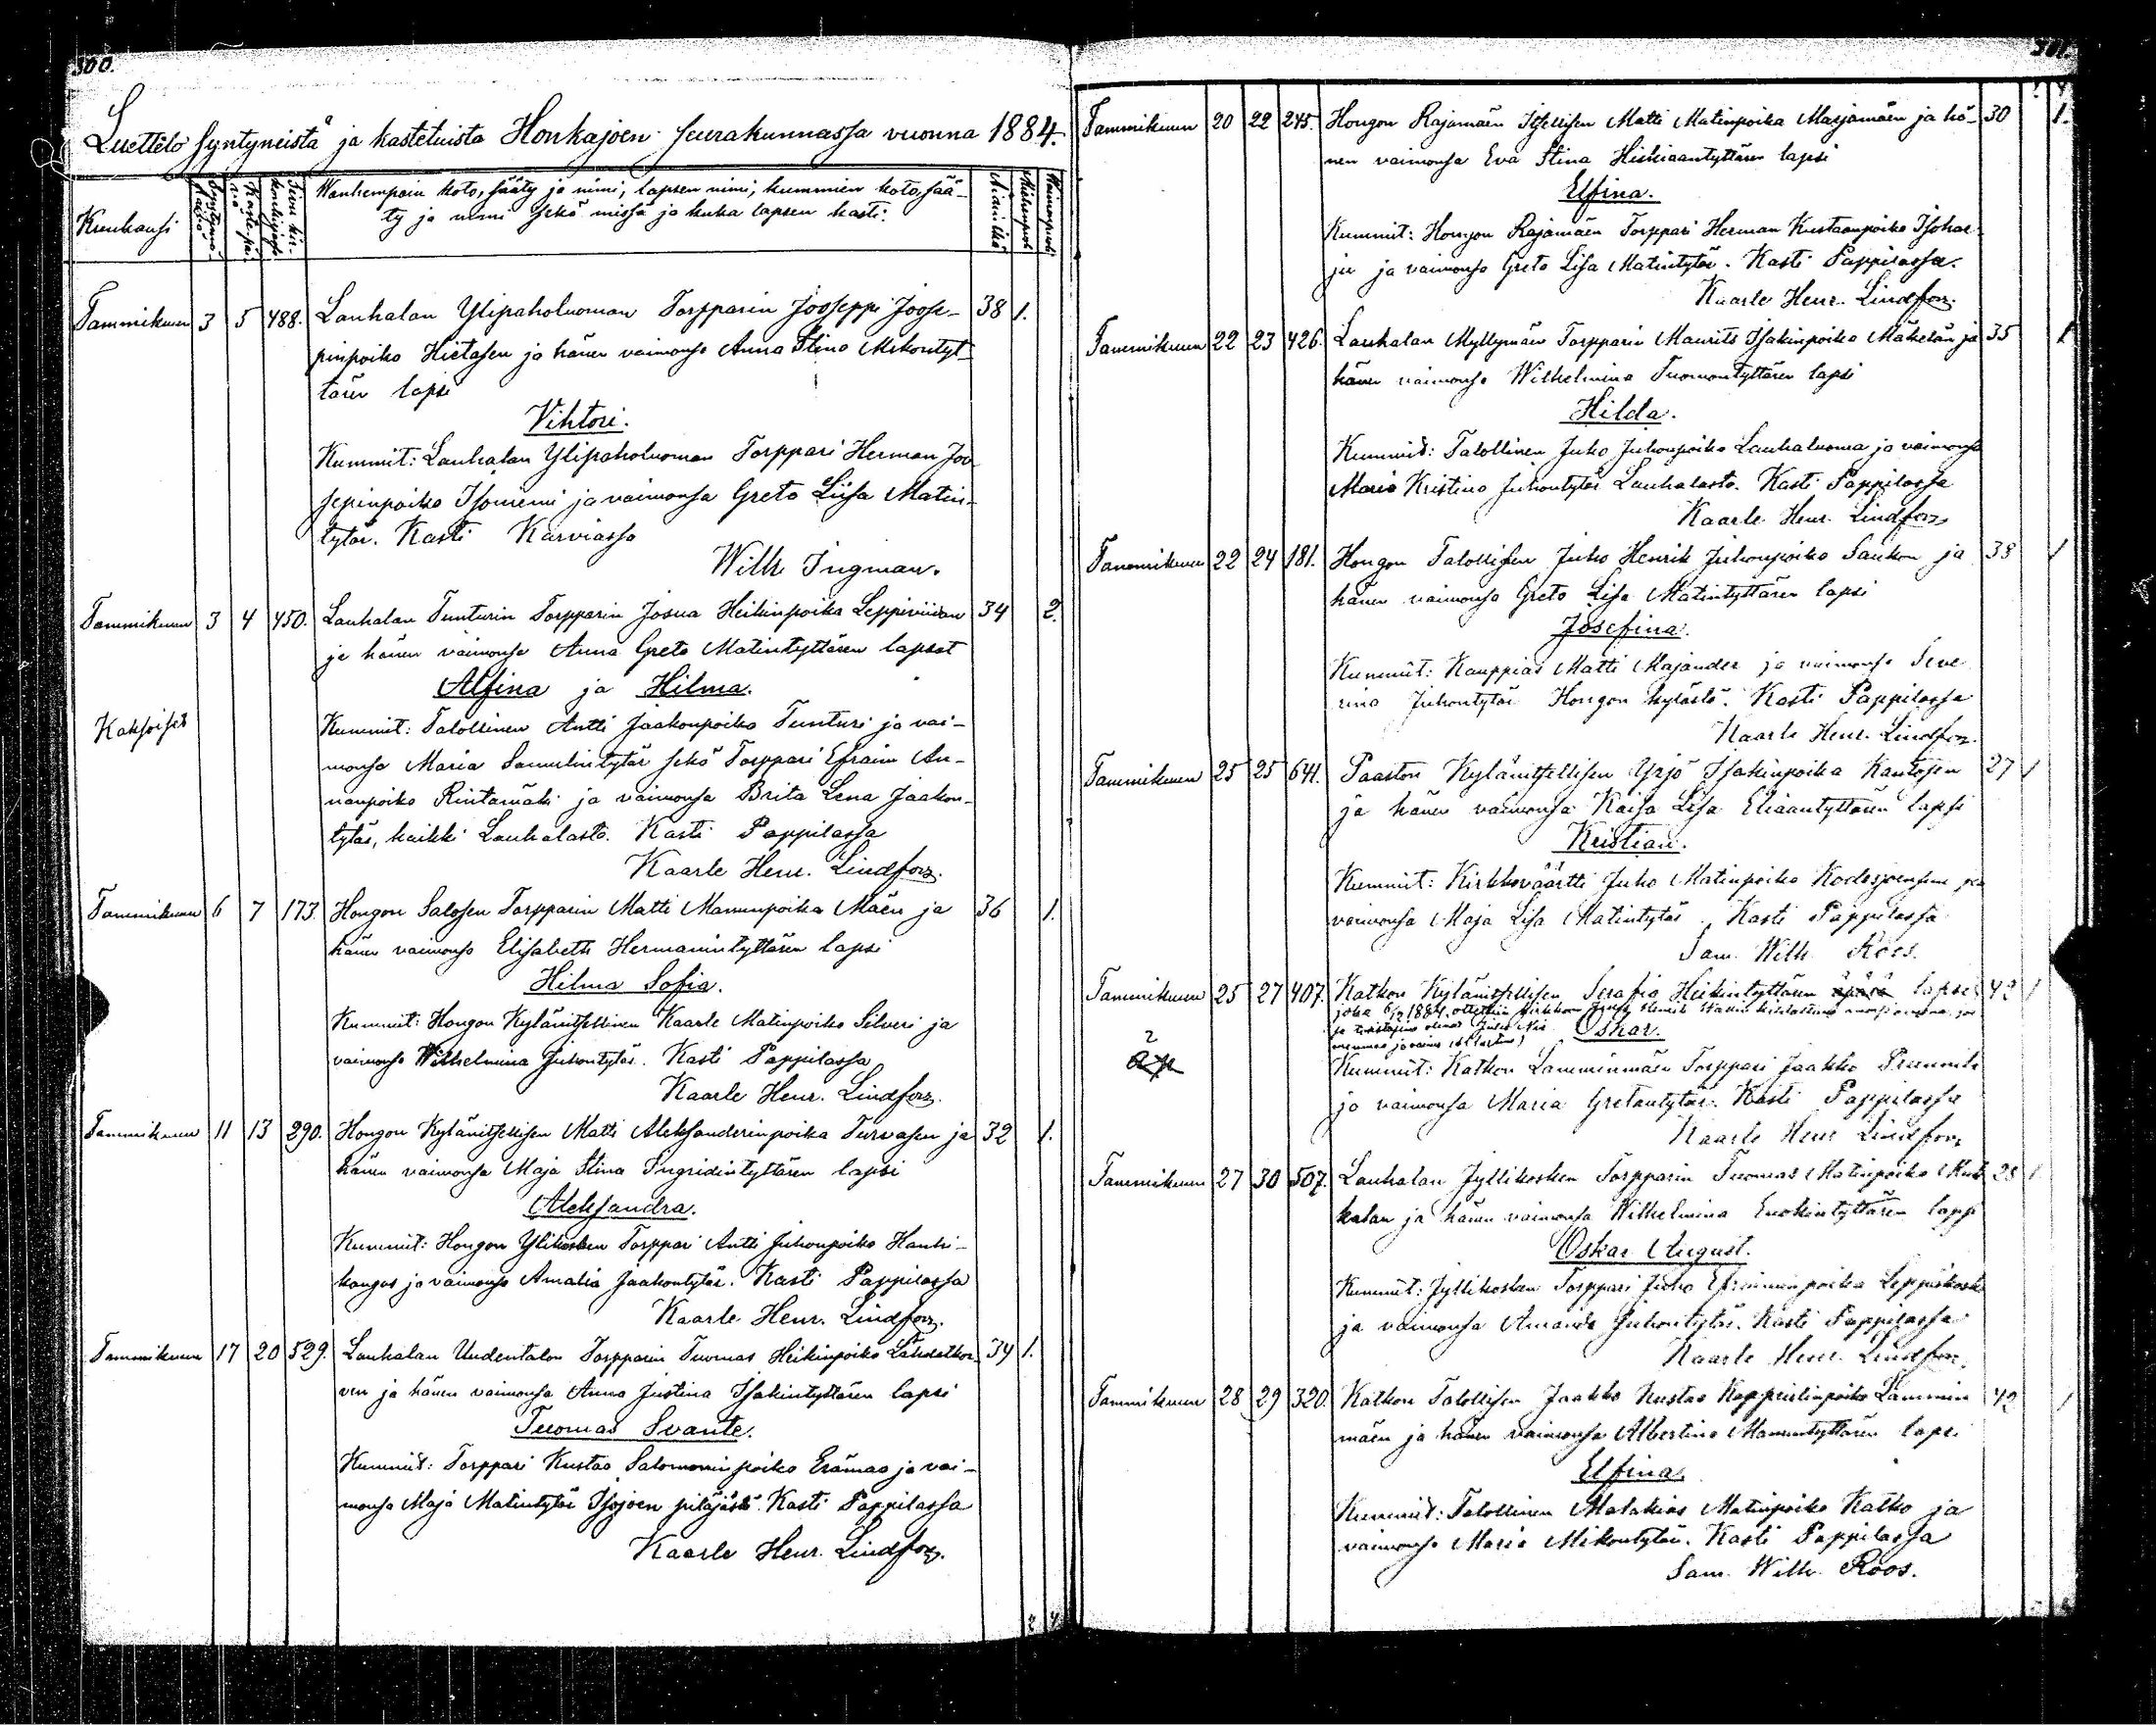 300.
Luettelo syntyneistä ja kastetuista Honkajoen seurakunnassa vuonna 1884.
Kuukausi
Wanhempain koto, sääty ja nimi, lapsen nimi, kummien koto, sää-
ty ja nimi sekä missä ja kuka lapsen kasti.
Tammikuun 3 5 488. Lauhalan Ylipaholuoman Torpparin Jooseppi Joose- 38 1.
pinpoika Hietasen ja hänen vaimonsa Anna Stina Mikontyt-
tären lapsi
Vihtori.
Kummit: Lauhalan Ylipaholuoman Torppari Herman Joo
sepinpoika Isoniemi ja vaimonsa Greta Liisa Matin-
tytär. Kasti Karviassa
Wilh. Ingman.
Tammikuun 3 4 450. Lauhalan Tunturin Torpparin Josua Heikinpoika Leppiviidan 34 2.
ja hänen vaimonsa Anna Greta Matintyttären lapset
Alfina ja Hilma.
Kaksoiset
Kummit: Talollinen Antti Jaakonpoika Tunturi ja vai-
monsa Maria Samulintytär sekä Torppari Efraim An-
nanpoika Rintamäki ja vaimonsa Brita Lena Jaakon-
tytär, kaikki Lauhalasta. Kasti Pappilassa
Kaarle Henr. Lindfors.
Tammikuun 6 7 173. Hongon Salosen Torpparin Matti Manunpoika Mäen ja 36 1.
hänen vaimonsa Elisabeth Hermanintyttären lapsi
Hilma Sofia.
Kummit: Hongon Kylänitsellinen Kaarle Matinpoika Silveri ja
vaimonsa Wilhelmina Juhontytär. Kasti Pappilassa
Kaarle Henr. Lindfors.
Tammikuun 11 13 290. Hongon Kylänitsellisen Matti Aleksanderinpoika Turvasen ja 32 1.
hänen vaimonsa Maja Stina Ingridintyttären lapsi
Aleksandra.
Kummit: Hongon Ylikosken Torppari Antti Juhonpoika Hanhi-
kangas ja vaimonsa Amalia Jaakontytär. Kasti Pappilassa
Kaarle Henr. Lindfors.
Tammikuun 17 20 529. Lauhalan Uudentalon Torpparin Tuomas Heikinpoika 34 1.
ven ja hänen vaimonsa Anna Justina Isakintyttären lapsi
Tuomas Svante.
Kummit: Torppari Kustaa Salomoninpoika Erämaa ja vai-
monsa Maja Matintytär Isojoen pitäjästä. Kasti Pappilassa
Kaarle Henr. Lindfors.
2 4
301.
Tammikuun 20 22 245. Hongon Rajamäen Itsellisen Matti Matinpoika Marjamäen ja hä- 30 1.
nen vaimonsa Eva Stina Hiskiaantyttären lapsi
Elfina.
Kummit: Hongon Rajamäen Torppari Herman Kustaanpoika Isohar-
ju ja vaimonsa Greta Lisa Matintytär. Kasti Pappilassa.
Kaarle Henr. Lindfors.
Tammikuun 22 23 426. Lauhalan Myllymäen Torpparin Maurits Isakinpoika Mäkelän ja 35 1
hänen vaimonsa Wilhelmina Tuomontyttären lapsi
Hilda.
Kummit: Talollinen Juho Juhonpoika Lauhaluoma ja vaimonsa
Maria Kristina Juhontytär Lauhalasta. Kasti Pappilassa
Kaarle Henr. Lindfors
Tammikuun 22 24 181. Hongon Talollisen Juho Henrik Juhonpoika Saukon ja 38 1
hänen vaimonsa Greta Lisa Matintyttären lapsi
Josefina.
Kummit: Kauppias Matti Majander ja vaimonsa Seve
rina Juhontytär Hongon kylästä. Kasti Pappilassa
Kaarle Henr. Lindfors.
Tammikuun 25 25 641. Paaston Kylänitsellisen Yrjö Isakinpoika Kantosen 27 1
ja hänen vaimonsa Kaisa Lisa Eliaantyttären lapsi
Kristian.
Kummit: Kirkkoväärtti Juho Matinpoika ja
vaimonsa Maja Lisa Matintytär. Kasti Pappilassa
Sam. Wilh. Roos.
Tammikuun 25 27 407. Katkon Kylänitsellisen Serafia Heikintyttären äpärä lapsi 42 1
joka 1884
Oskar.
2
Kummit: Katkon Lamminmäen Torppari Jaakko
ja vaimonsa Maria Gretantytär. Kasti Pappilassa
Kaarle Henr Lindfors
Tammikuun 27 30 507. Lauhalan Jyllikosken Torpparin Tuomas Matinpoika 28 1
kalan ja hänen vaimonsa Wilhelmina Enokintyttären lapsi
Oskar August.
Kummit: Jyllikosken Torppari Juho Efraiminpoika Leppäkoski
ja vaimonsa Amanda Juhontytär. Kasti Pappilassa
Kaarle Henr. Lindfors.
Tammikuun 28 29 320. Katkon Talollisen Jaakko Kustaa Lammin 42 1
mäen ja hänen vaimonsa Albertina Manuntyttären lapsi
Elfina.
Kummit: Talollinen Malakias Matinpoika Katko ja
vaimonsa Maria Mikontytär. Kasti Pappilassa
Sam. Wilh. Roos.